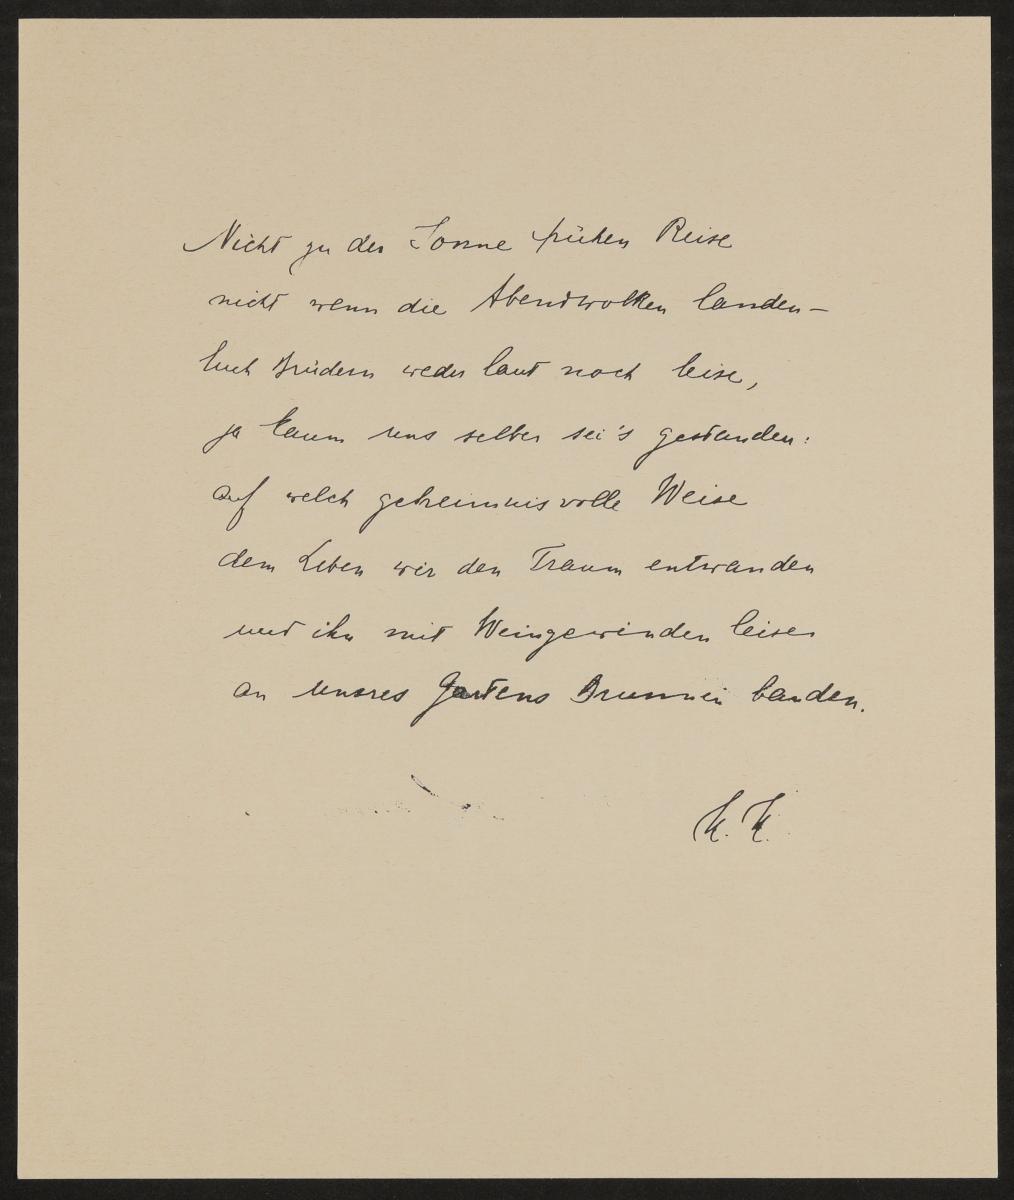 Nicht zu der Sonne frühen Reise
nicht wenn die Abendwolken landen –
Euch Brüdern weder laut noch leise,
ja kaum uns selber sei's gestanden:
auf welch geheimnisvolle Weise
dem Leben wir den Traum entwanden
und ihn mit Weingewinden leise
an unsres Gartens Brunnen banden.
K. K.